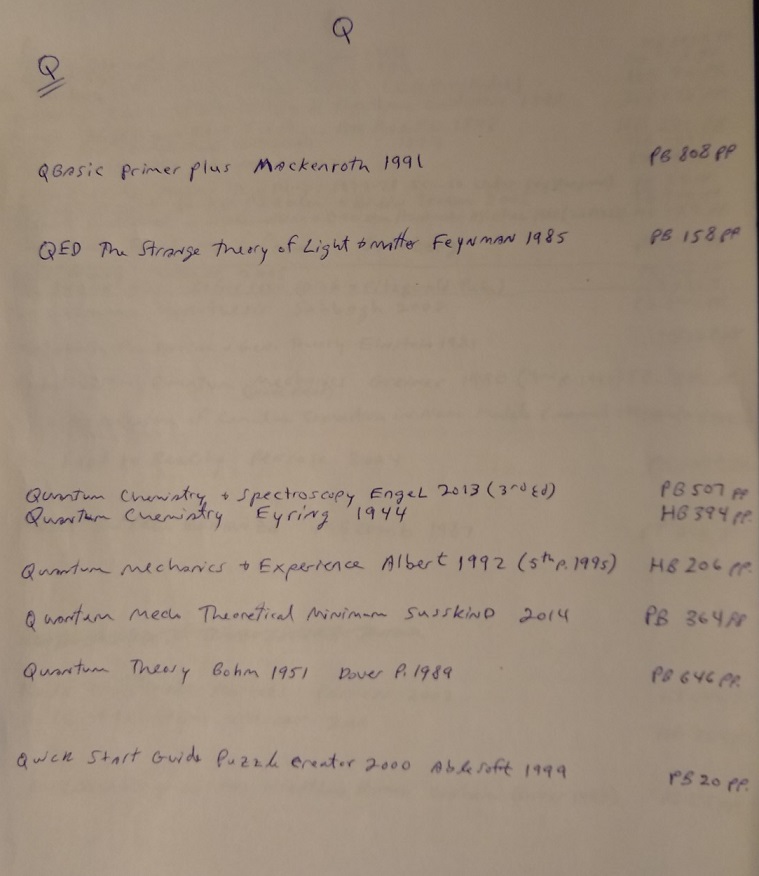 Q
Q
QBasic primer plus Mackenroth 1991 PB 808 PP
QED The Strange theory of Light & matter FEYNMAN 1985 PB 158 PP
Quantum Chemistry + Spectroscopy Engel 2013 (3rd Ed) PB 507 PP
Quantum Chemistry Eyring 1944 HB 394 PP.
Quantum mechanics + Experience Albert 1992 (5th p. 1995) HB 206 PP.
Quantum Mech Theoretical Minimum SUSSKIND 2014 PB 364 PP
Quantum Theory Bohm 1951 Dover P. 1989 PB 646 PP.
Quick Start Guide Puzzle Creator 2000 Able soft 1999 PB 20 PP.